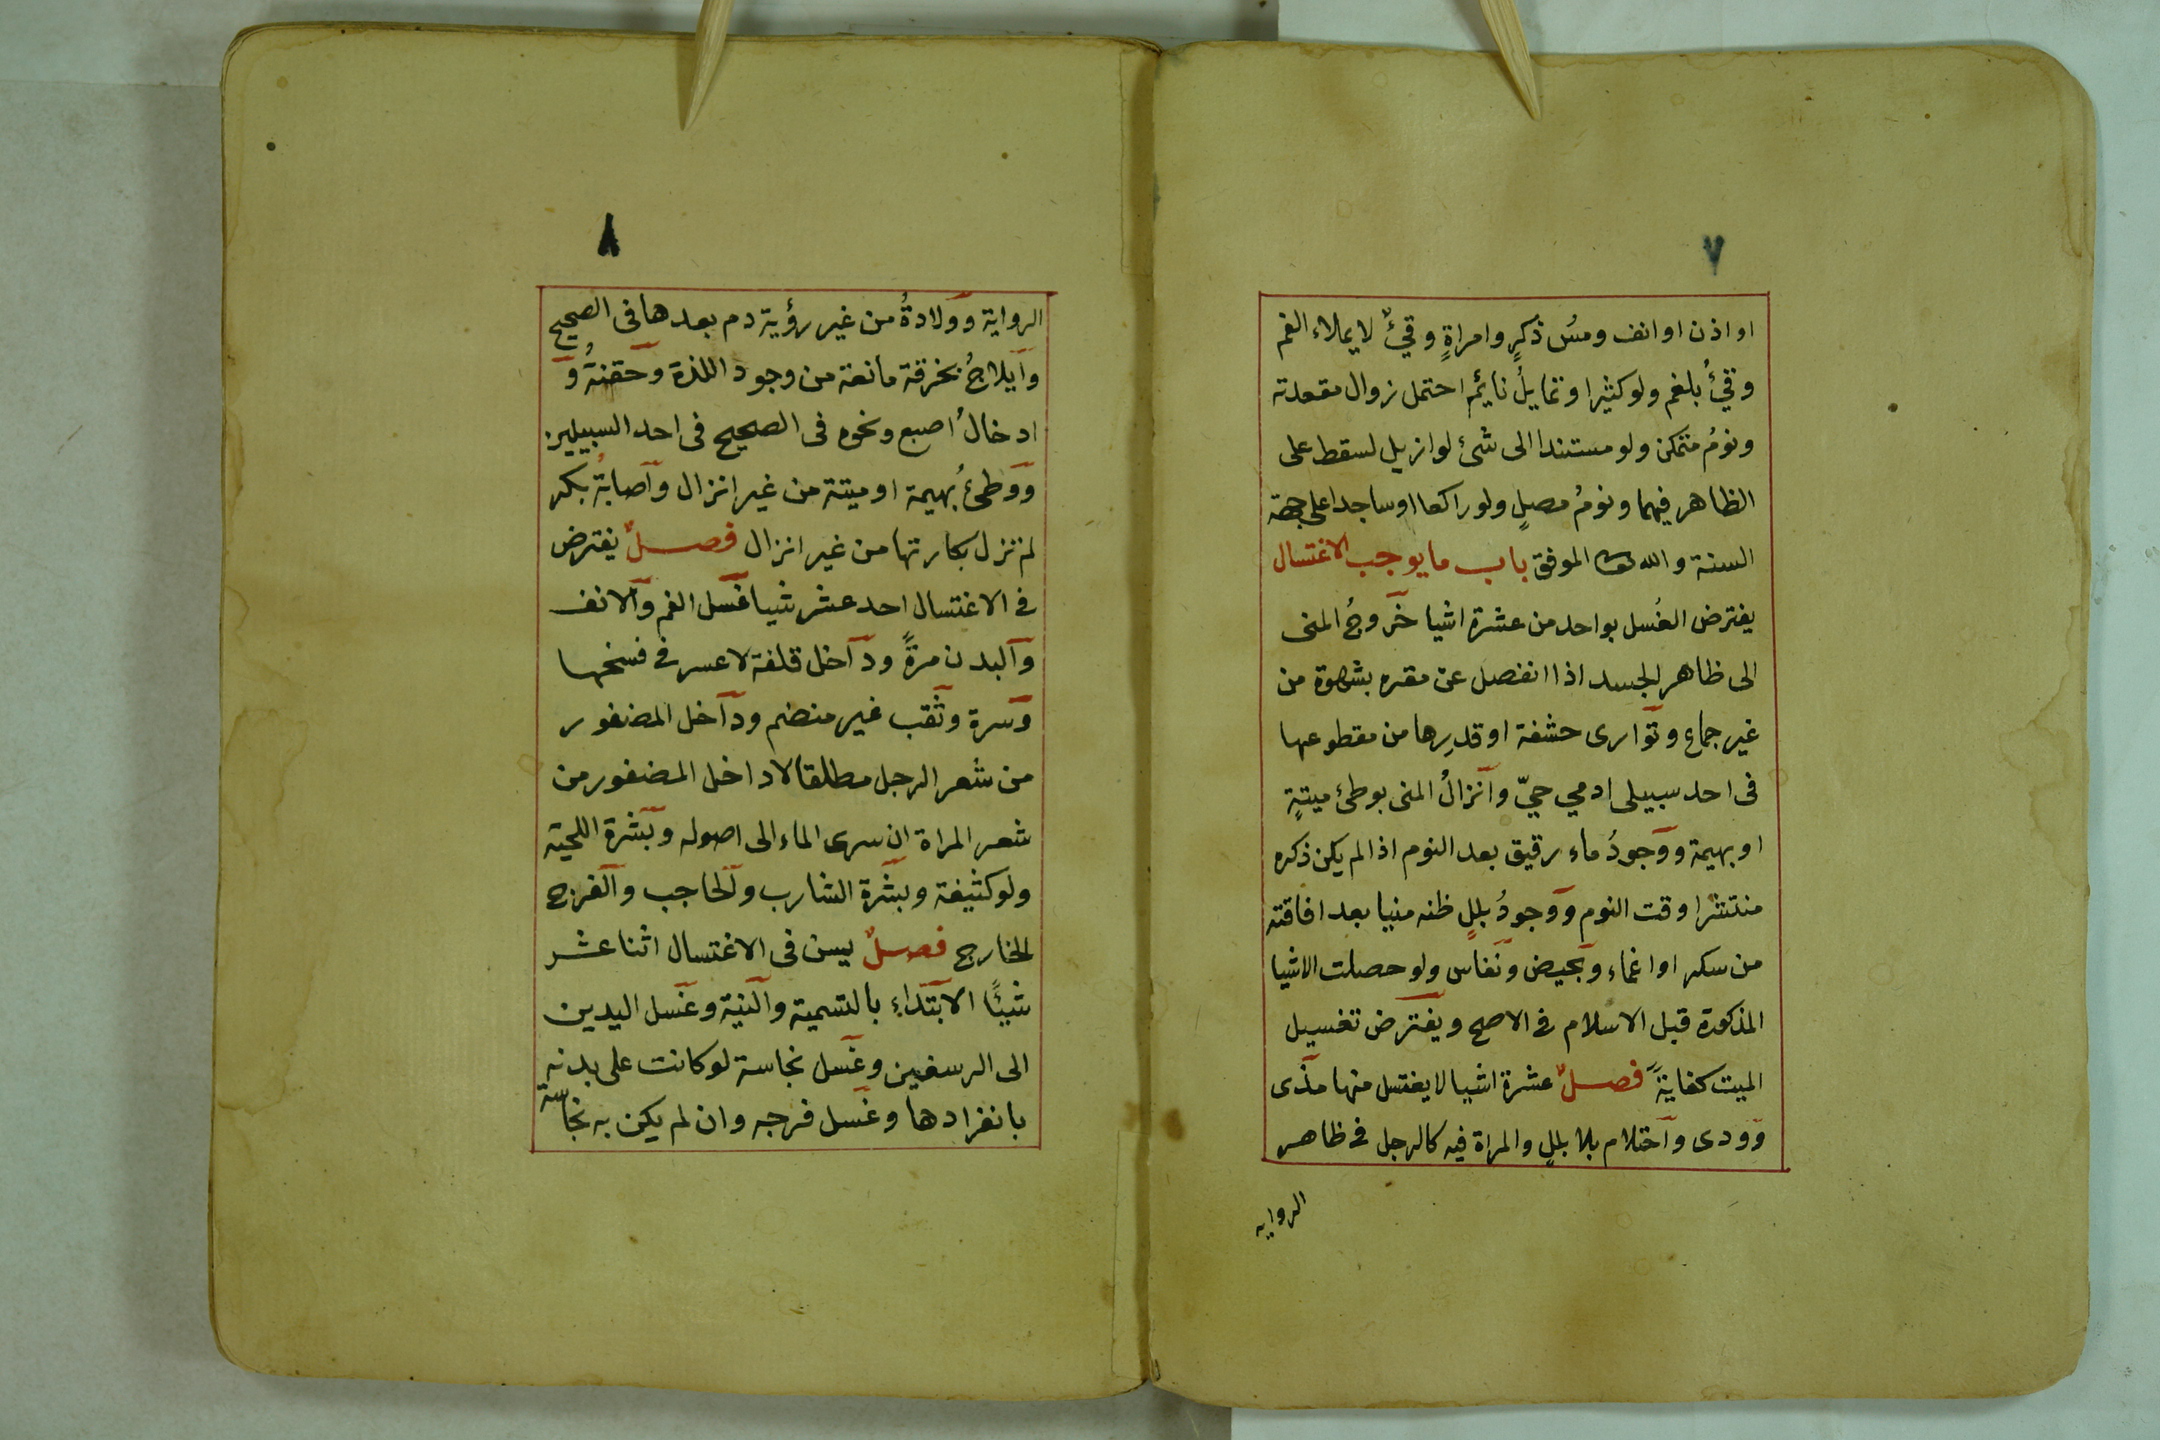 ٧
او اذن او انف ومسُ ذكرٍ وامراةٍ وقئٌ لا يملاء الفم
وقئُ بلغم ولو كثيرا وتمايلُ نايم احتمل زوال مقعدته
ونومُ متمكن ولو مستندا الى شئ لو ازيل لسقط على
الظاهر فيهما ونومُ مصلٍ ولو راكعا او ساجدا على جهة
السنة والله الموفق باب ما يوجب الاغتسال
يفترض الغُسل بواحد من عشرة اشيا خروجُ المنى
الى ظاهر الجسد اذا انفصل عن مقره بشهوة من
غير جماع وتوارى حشفة او قدرِها من مقطوعها
فى احد سبيلى ادمي حيّ وانزالُ المنى بوطئ ميتةٍ
او بهيمة ووجودُ ماء رقيق بعد النوم اذا لم يكن ذكره
منتشرا وقت النوم ووجودُ بللٍ ظنه منيا بعد افاقته
من سكر او اغماء وبحيض ونفاس ولو حصلت الاشيا
المذكورة قبل الاسلام فى الاصح ويفترض تغسيل
الميت كفايةً فصلٌ عشرة اشيا لا يغتسل منها مذى
وودى واحتلام بلا بللٍ والمراة فيه كالرجل فى ظاهر
الروايه
٨
الرواية وولادةٌ من غير رؤية دم بعدها فى الصحيح
وايلاجُ بخرقة مانعة من وجود اللذة وحقنةُ و
ادخالُ اصبع ونحوه فى الصحيح فى احد السبيلين
ووطئُ بهيمة او ميتة من غير انزال واصابةُ بكر
لم تزل بكارتها من غير انزال فصلٌ يفترض
فى الاغتسال احد عشر شيا غسل الفم والانف
والبدن مرةً وداخل قلفة لا عسر فى فسخها
وسرة وثقب غير منضم وداخل المضفور
من شعر الرجل مطلقا لا داخل المضفور من
شعر المراة ان سرى الماء الى اصوله وبشرة اللحية
ولو كثيفة وبشرة الشارب والحاجب والفرج
الخارج فصلٌ يسن فى الاغتسال اثنا عشر
شيئًا الابتداء بالتسمية والنية وغسل اليدين
الى الرسغين وغسل نجاسة لو كانت على بدنه
بانفرادها وغسل فرجه وان لم يكن به نجاسة